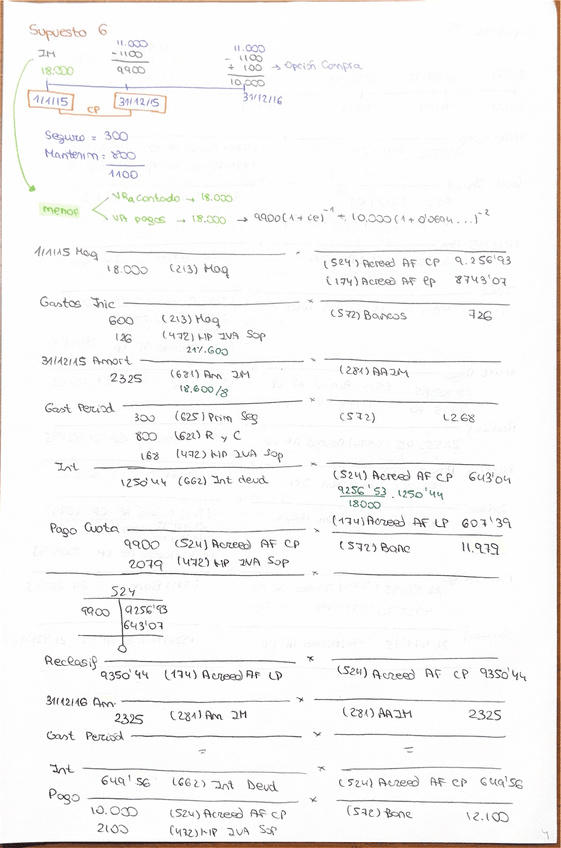 Supuesto 6
11.000 11.000
IM -1100 - 1100
18.000 9900 + 100 → Opción Compra
10,000
1/1/15 31/12/15 31/12/16
CP
Seguro = 300
Mantenim = 800
1100
menor VRa Contado → 18.000
VA pagos → 18.000 → 9900(1+ie)⁻¹ + 10,000(1+0'0694...)⁻²
1/1/15 Maq
18.000 (213) Maq (524) Acreed AF CP 9.256'93
(174) Acreed AF lp 8743'07
Gastos Inic
600 (213) Maq (572) Bancos 726
126 (472) HP IVA Sop
21%.600
31/12/15 Amort
2325 (681) Am IM (281) AAIM
18.600/8
Gast Period
300 (625) Prim Seg (572) 1.268
800 (622) R y C
168 (472) HP IVA Sop
Int
1250'44 (662) Int deud (524) Acreed AF CP 643'04
9256'53/18000 . 1250'44
(174) Acreed AF LP 607'39
Pago Cuota
9900 (524) Acreed AF CP (572) Banc 11.979
2079 (472) HP IVA Sop
524
9900 9256'93
643'07
Reclasif
9350'44 (174) Acreed AF LP (524) Acreed AF CP 9350'44
31/12/16 Am
2325 (281) Am IM (281) AAIM 2325
Gast Period
= =
Int
649'56 (662) Int Deud (524) Acreed AF CP 649'56
Pago
10.000 (524) Acreed AF CP (572) Banc 12.100
2100 (472) HP IVA Sop
4